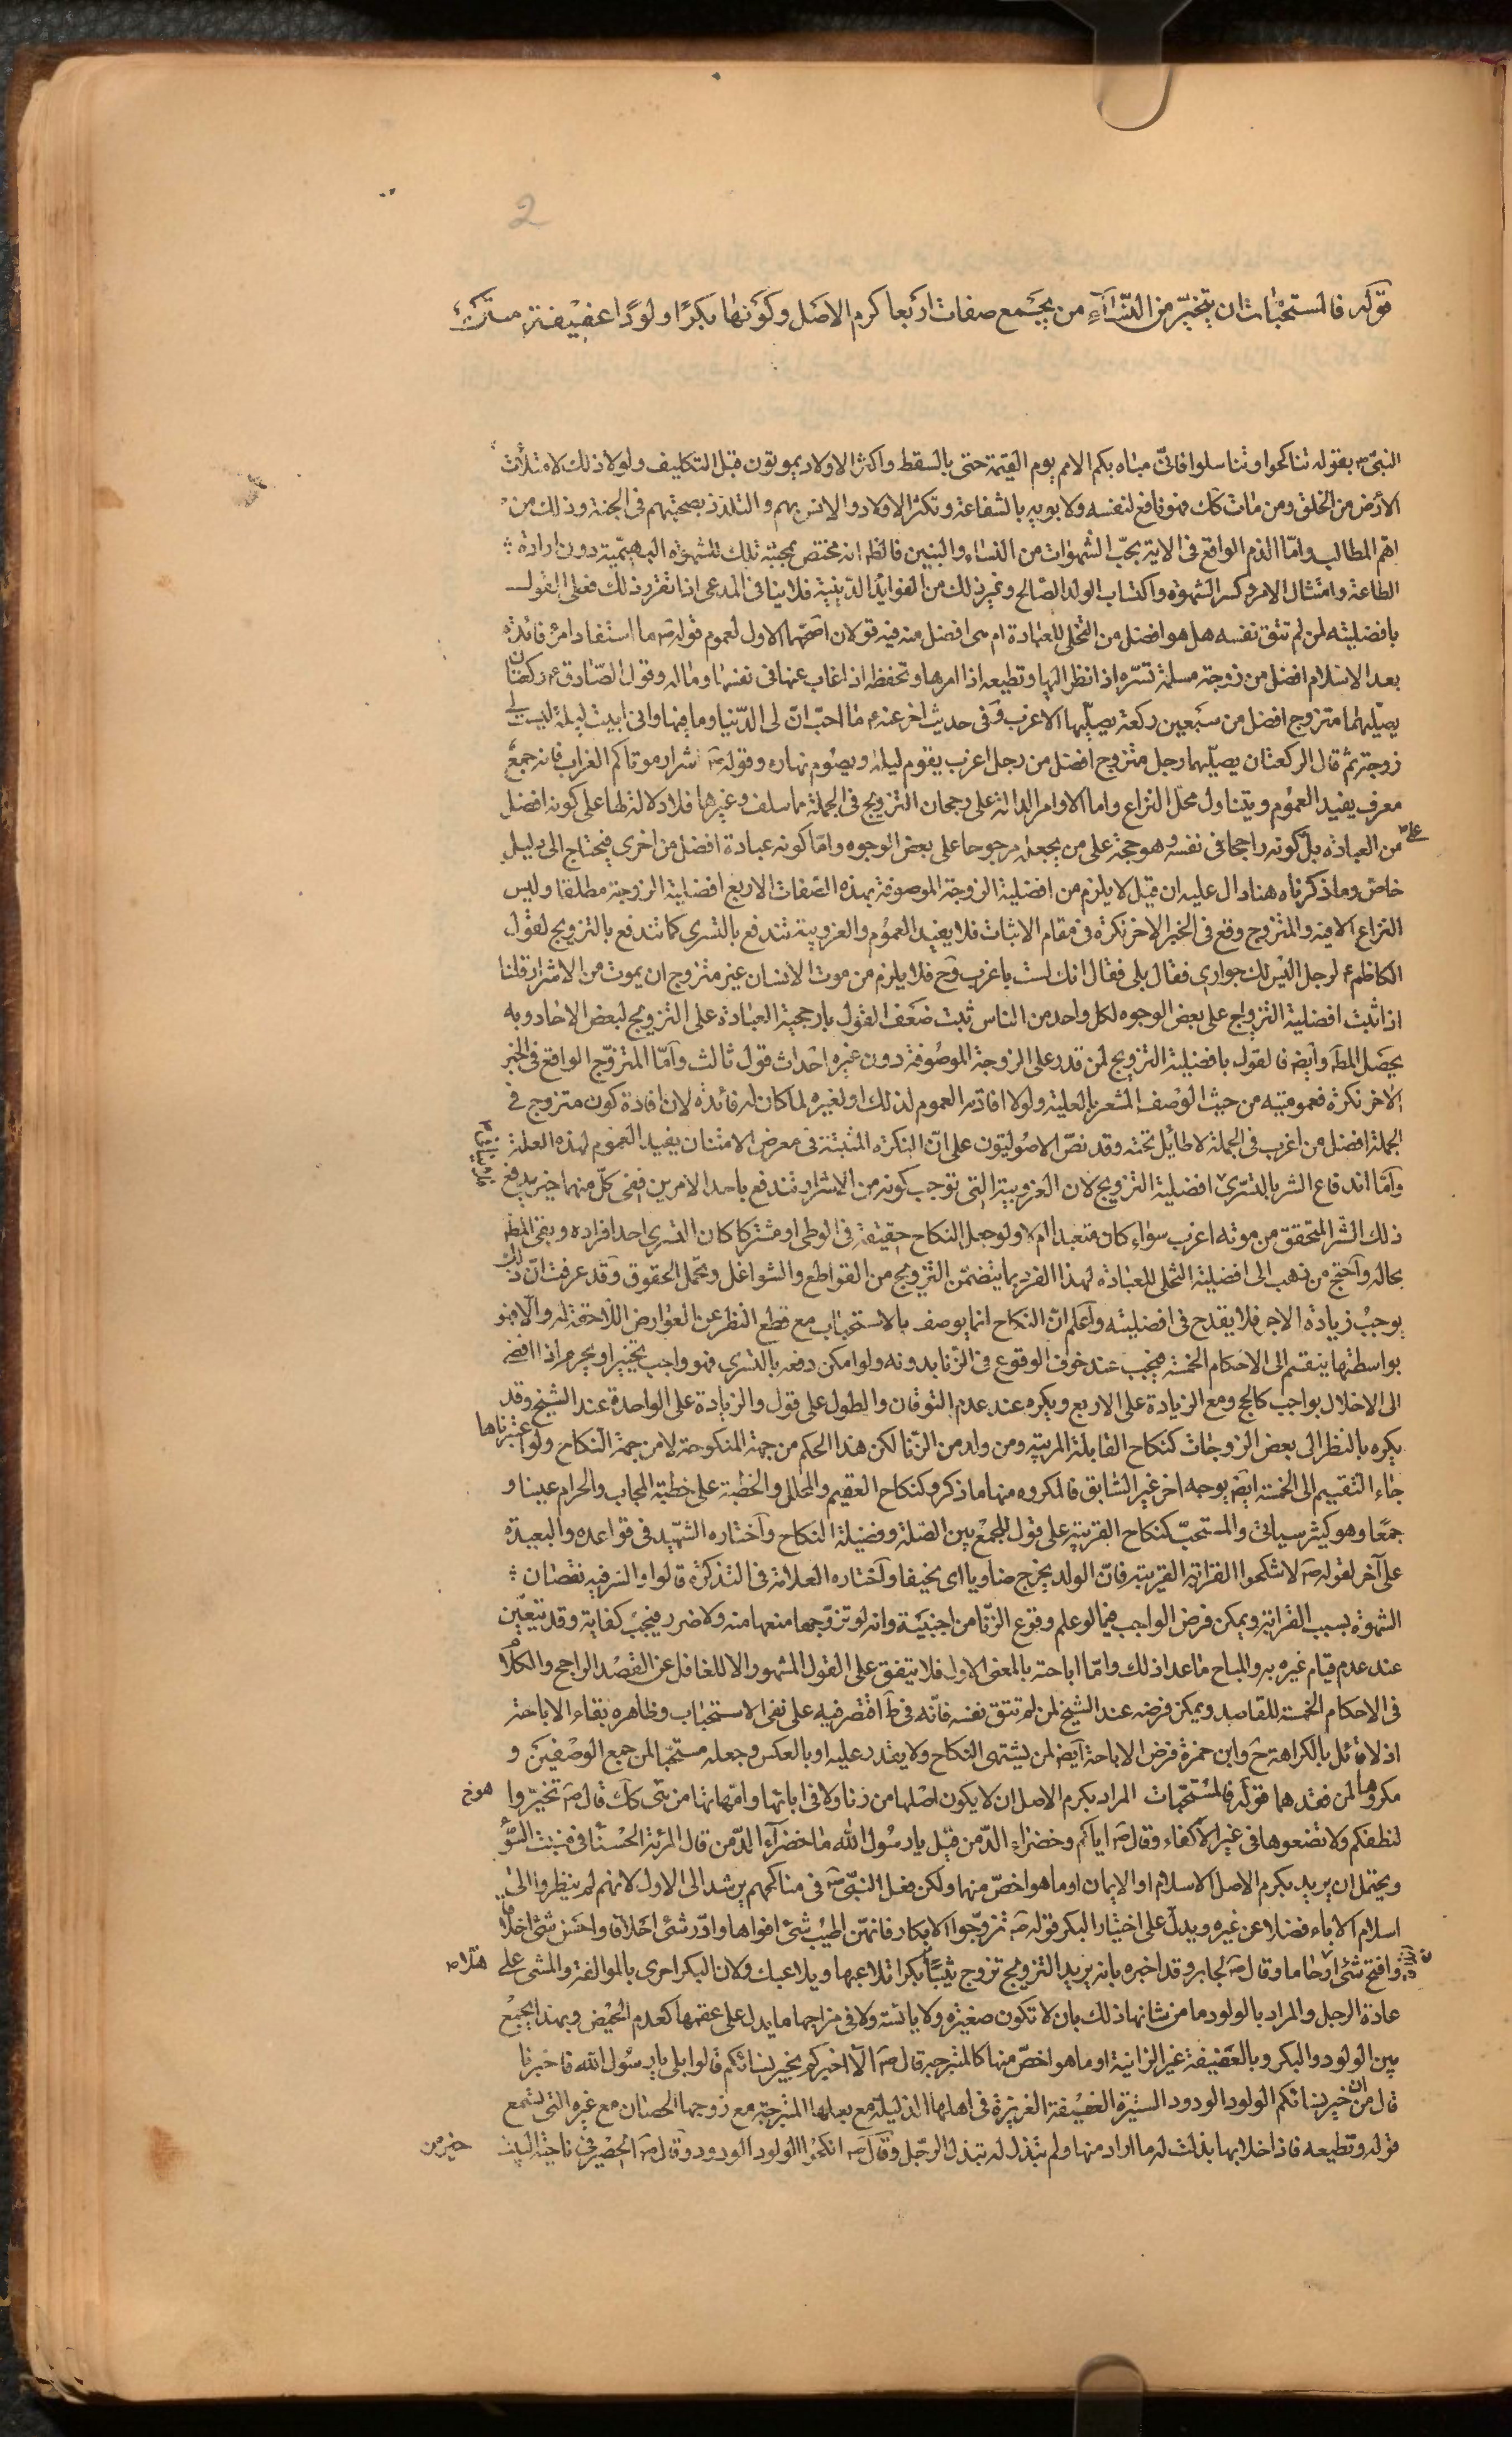 2
قوله فالمستحبات ان يتخير من النساء من يجتمع صفات اربعا كرم الاصل وكونها بكرًا ولودًا عفيفة
النبي ص بقوله تناكحوا وتناسلوا فانى مباه بكم الامم يوم القيمة حتى بالسقط واكثر الاولاد يموتون قبل التكليف ولولا ذلك لامتلأت
الأرض من الخلق ومن مات كك فهو نافع لنفسه ولابويه بالشفاعة وتكثر الاولاد والانس بهم والتلذذ بصحبتهم فى الجنة وذلك من
اهم المطالب وامّا الذم الواقع فى الاية بحبّ الشهوات من النساء والبنين فالظ انه مختص بمحبة تلك للشهوة البهيمية دون ارادة
الطاعة وامتثال الامر وكسر الشهوة واكتساب الولد الصالح وغير ذلك من الفوايد الدينية فلا ينافى المدعى اذا تقرر ذلك فهل القول
بافضليته لمن لم تتق نفسه هل هو افضل من التخلى للعبادة ام هى افضل منه فيه قولان اصحهما الاول لعموم قوله ص ما استفاد امرؤ فائدة
بعد الاسلام افضل من زوجة مسلمة تسرّه اذا نظر اليها وتطيعه اذا امرها وتحفظه اذا غاب عنها فى نفسها وماله وقول الصّادق ع ركعتان
يصلّيهما متزوج افضل من سبعين ركعة يصلّيها الاعزب وفى حديث اخر عنه ع ما احبّ انّ لى الدّنيا وما فيها وانى ابيت ليلة ليست لى
زوجة ثم قال الركعتان يصلّيهما رجل متزوج افضل من رجل اعزب يقوم ليله ويصوم نهاره وقوله ص شرار موتاكم العزاب فانه جمع
معرف يفيد العموم ويتناول محل النزاع واما الاوامر الدالة على رجحان التزويج فى الجملة مما سلف وغيرها فلا دلالة لها على كونه افضل
من العبادة بل كونه راجحا فى نفسه وهو حجة على من يجعله مرجوحا على بعض الوجوه وامّا كونه عبادة افضل من اخرى فيحتاج الى دليل
خاص وما ذكرناه هنا دال عليه ان قيل لا يلزم من افضلية الزوجة الموصوفة بهذه الصفات الاربع افضلية الزوجة مطلقا وليس
النزاع الا فيه والمتزوج وقع فى الخبر الاخر نكرة فى مقام الاثبات فلا يفيد العموم والعزوبية تندفع بالتسرى كما تندفع بالتزويج لقول
الكاظم ع لرجل اليس لك جوارى فقال بلى فقال انك لست باعزب وح فلا يلزم من موت الانسان غير متزوج ان يموت من الاشرار قلنا
اذا ثبت افضلية التزويج على بعض الوجوه لكل واحد من الناس ثبت ضعف القول بارجحية العبادة على التزويج لبعض الاحاد وبه
يحصل المط وايض فالقول بافضيلة التزويج لمن قدر على الزوجة الموصوفة دون غيره احداث قول ثالث وامّا المتزوّج الواقع فى الخبر
الاخر نكرة فعموميته من حيث الوصف المشعر بالعلية ولولا افادته العموم لذلك او لغيره لما كان له فائدة لان افادة كون متزوج فى
الجملة افضل من اعزب فى الجملة لا طائل تحته وقد نصّ الاصوليون على انّ النكرة المثبتة فى معرض الامتنان يفيد العموم لهذه العلة
وامّا اندفاع الشر بالتسرّى افضلية التزويج لان العزوبية التى توجب كونه من الاشرار تندفع باحد الامرين ففى كلّ منهما خير يدفع
ذلك الشر المتحقق من موته اعزب سواء كان متعبدا ام لا ولو جعل النكاح حقيقة فى الوطى او مشتركا كان التسرى احد افراده وبقى المط
بحاله واحتج من ذهب الى افضلية التخلى للعبادة لهذا الفرد بما يتضمّن التزويج من القواطع والشواغل وتحمّل الحقوق وقد عرفت انّ ذلك
يوجب زيادة الاجر فلا يقدح فى افضليته واعلم انّ النكاح انما يوصف بالاستحباب مع قطع النظر عن العوارض اللاحقة له والّا فهو
بواسطتها ينقسم الى الاحكام الخمسة فيجب عند خوف الوقوع فى الزنا بدونه ولو امكن دفعه بالتسرى فهو واجب تخييرا ويحرم اذا افضى
الى الاخلال بواجب كالحج ومع الزيادة على الاربع ويكره عند عدم التوقان والطول على قول والزيادة على الواحدة عند الشيخ وقد
يكره بالنظر الى بعض الزوجات كنكاح القابلة المربية ومن ولد من الزّنا لكن هذا الحكم من جهة المنكوحة لا من جهة النكاح ولو اعتبرناها
جاء التقسيم الى الخمسة ايض بوجه اخر غير السابق فالمكروه منها ما ذكر وكنكاح العقيم والمحلل والخطبة على خطبة المجاب والحرام عينا و
جمعًا وهو كثير سياتى والمستحبّ كنكاح القريبة على قول للجمع بين الصلة وفضيلة النكاح واختاره الشهيد فى قواعده والبعيدة
على آخر لقوله ص لا تنكحوا القرابة القريبة فانّ الولد يخرج ضاويا اى نحيفا واختاره العلامة فى التذكرة قالوا والسر فيه نقصان
الشهوة بسبب القرابة ويمكن فرض الواجب فيما لو علم وقوع الزّنا من اجنبيّة وانه لو تزوّجها منعها منه ولا ضرر فيجب كفاية وقد تتعيّن
عند عدم قيام غيره به والمباح ما عدا ذلك وامّا اباحته بالمعنى الاول فلا يتفق على القول المشهور الا للغافل عن القصد الراجح والكلام
فى الاحكام الخمسة للقاصد ويمكن فرضه عند الشيخ لمن لم تتق نفسه فانّه فى ط اقتصر فيه على نفى الاستحباب وظاهره بقاء الاباحة
اذ لا قائل بالكراهة ح وابن حمزة فرض الاباحة ايض لمن يشتهى النكاح ولا يقدر عليه او بالعكس وجعله مستحبا لمن جمع الوصفين و
مكروها لمن فقدهما قوله فالمستحبّات المراد بكرم الاصل ان لا يكون اصلها من زنا ولا فى ابائها وامّهاتها من هى كك قال ص تخيّروا
لنطفكم ولا تضعوها فى غير الاكفاء وقال ص اياكم وخضراء الدّمن قيل يا رسول الله ما خضرآء الدّمن قال المرئة الحسناء فى منبت السّوء
ويحتمل ان يريد بكرم الاصل الاسلام او الايمان او ما هو اخصّ منها ولكن فعل النبىّ ص فى مناكحهم يرشد الى الاول لانهم لم ينظروا الى
اسلام الاباء فضلا عن غيره ويدلّ على اختيار البكر قوله ص تزوّجوا الابكار فانهنّ اطيب شئ افواها وادّر شئ اخلافا واحسن شئ اخلاقا
وافتح شئ ارحاما وقال ص لجابر وقد اخبره بانه يريد التزويج تزوج ثيّبًا بكرا تلاعبها ويلاعبك ولان البكر احرى بالموالفة والمشى على هلا
عادة الرجل والمراد بالولود ما من شانها ذلك بان لا تكون صغيرة ولا يائسة ولا فى مزاجها ما يدل على عقمها كعدم الحيض وبهذا يجمع
بين الولود والبكر وبالعفيفة غير الزانية او ما هو اخصّ منها كالمتبرجة قال ص الا اخبركم بخير نسائكم قالوا بلى يا رسول الله فاخبرنا
قال ان من خير نسائكم الولود الودود الستيرة العفيفة العزيزة فى اهلها الذليلة مع بعلها المتبرجة مع زوجها الحصان مع غيره التى تسمع
قوله وتطيعه فاذا خلا بها بذلت له ما اراد منها ولم تبذل له تبذل الرجل وقال ص انكحوا الولود الودود وقال ص الحصير فى ناحية البيت خير من